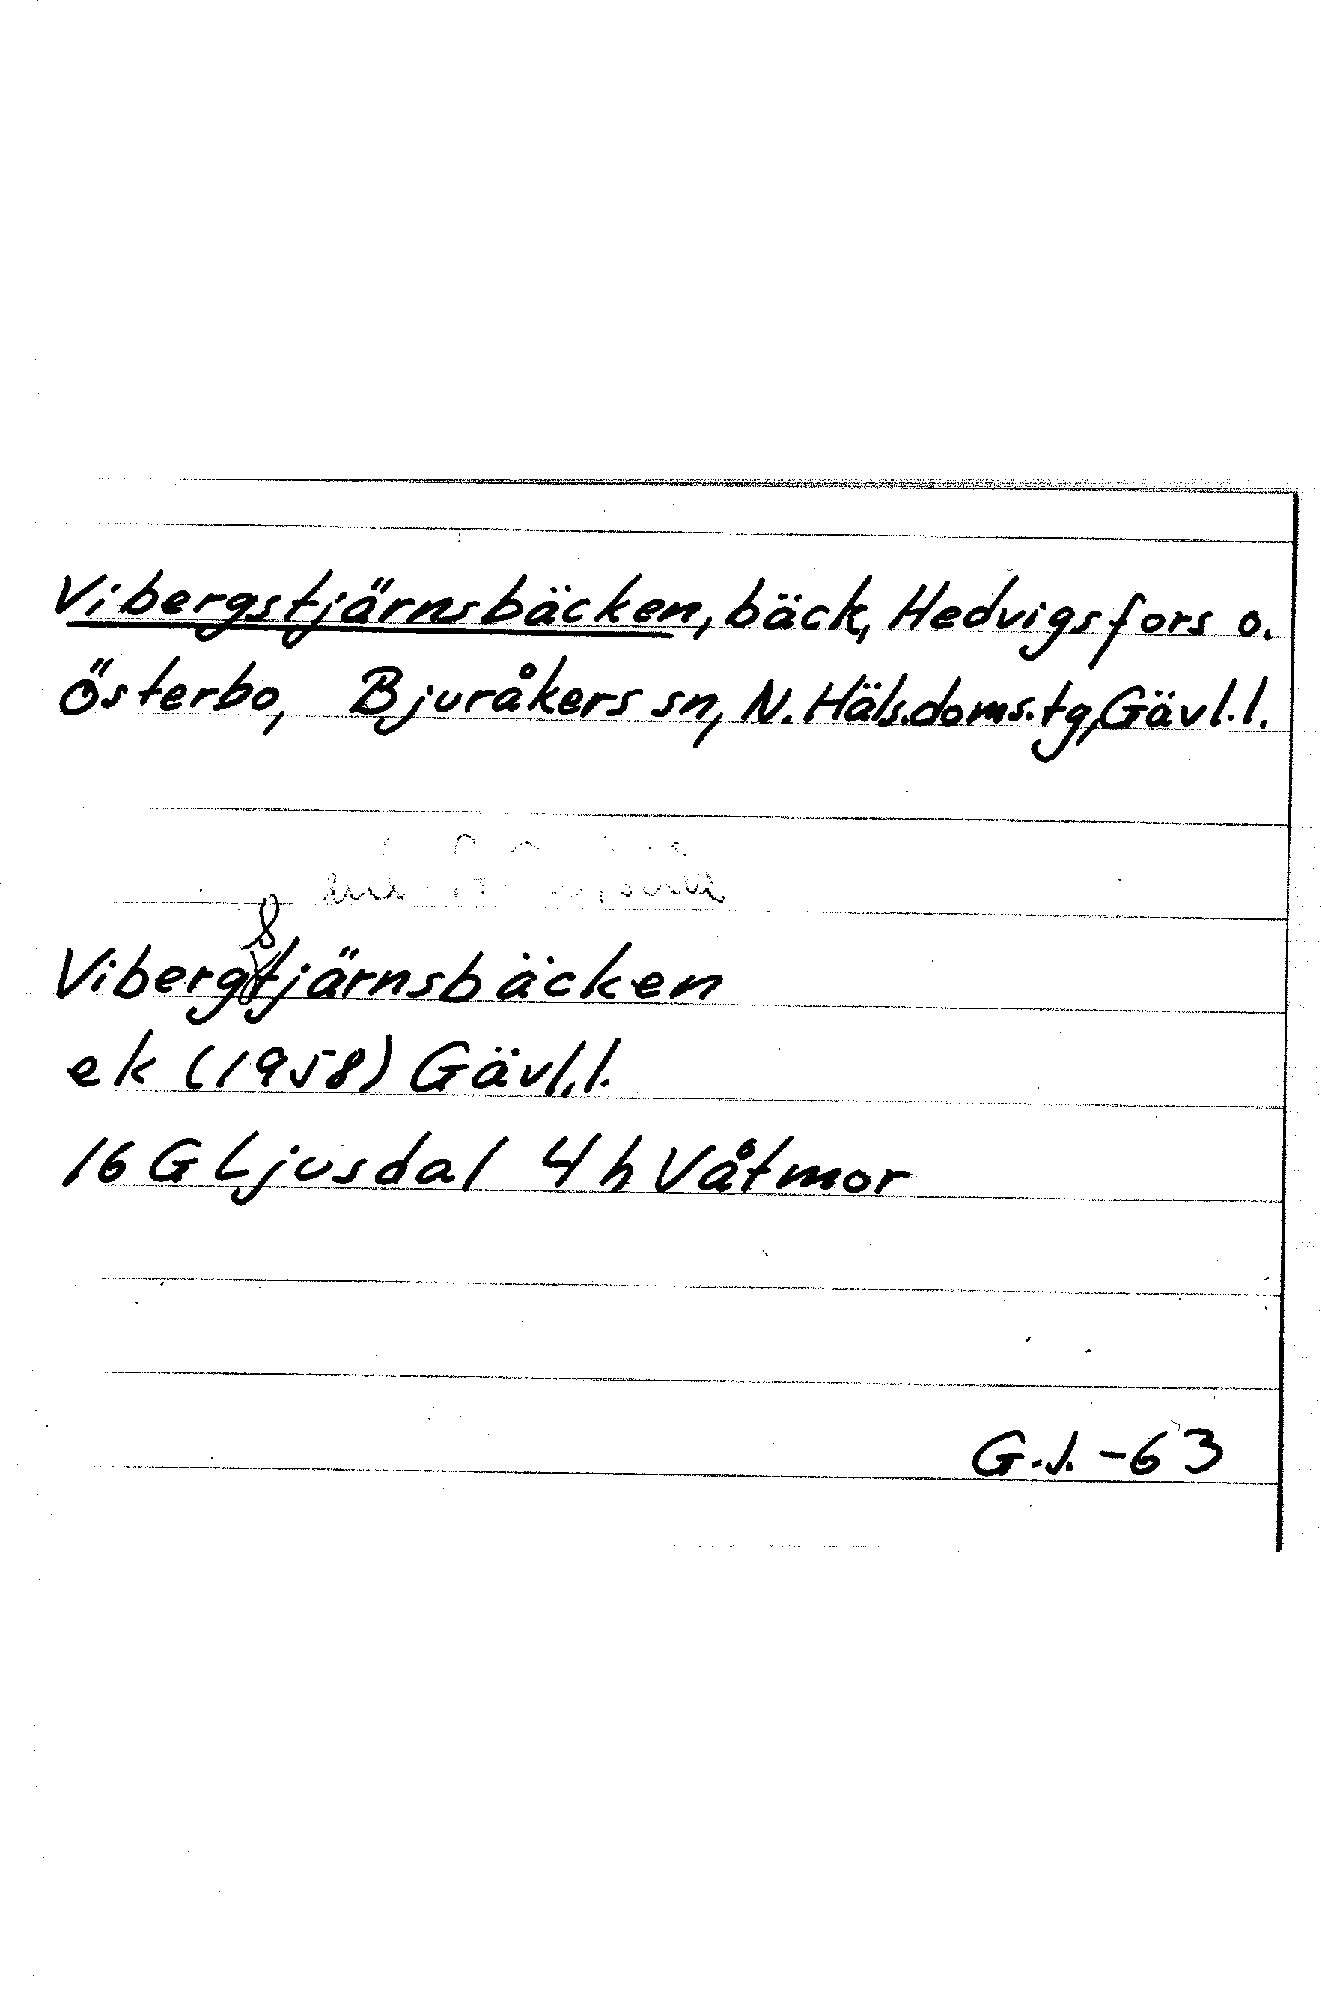 Vibergstjärnsbäcken, bäck, Hedvigsfors o.
Österbo, Bjuråkers sn, N. Häls. doms. tg, Gävl. l.
Vibergstjärnsbäcken
ek (1958) Gävl. l.
16 G Ljusdal 4 h Våtmor
G. J. -63